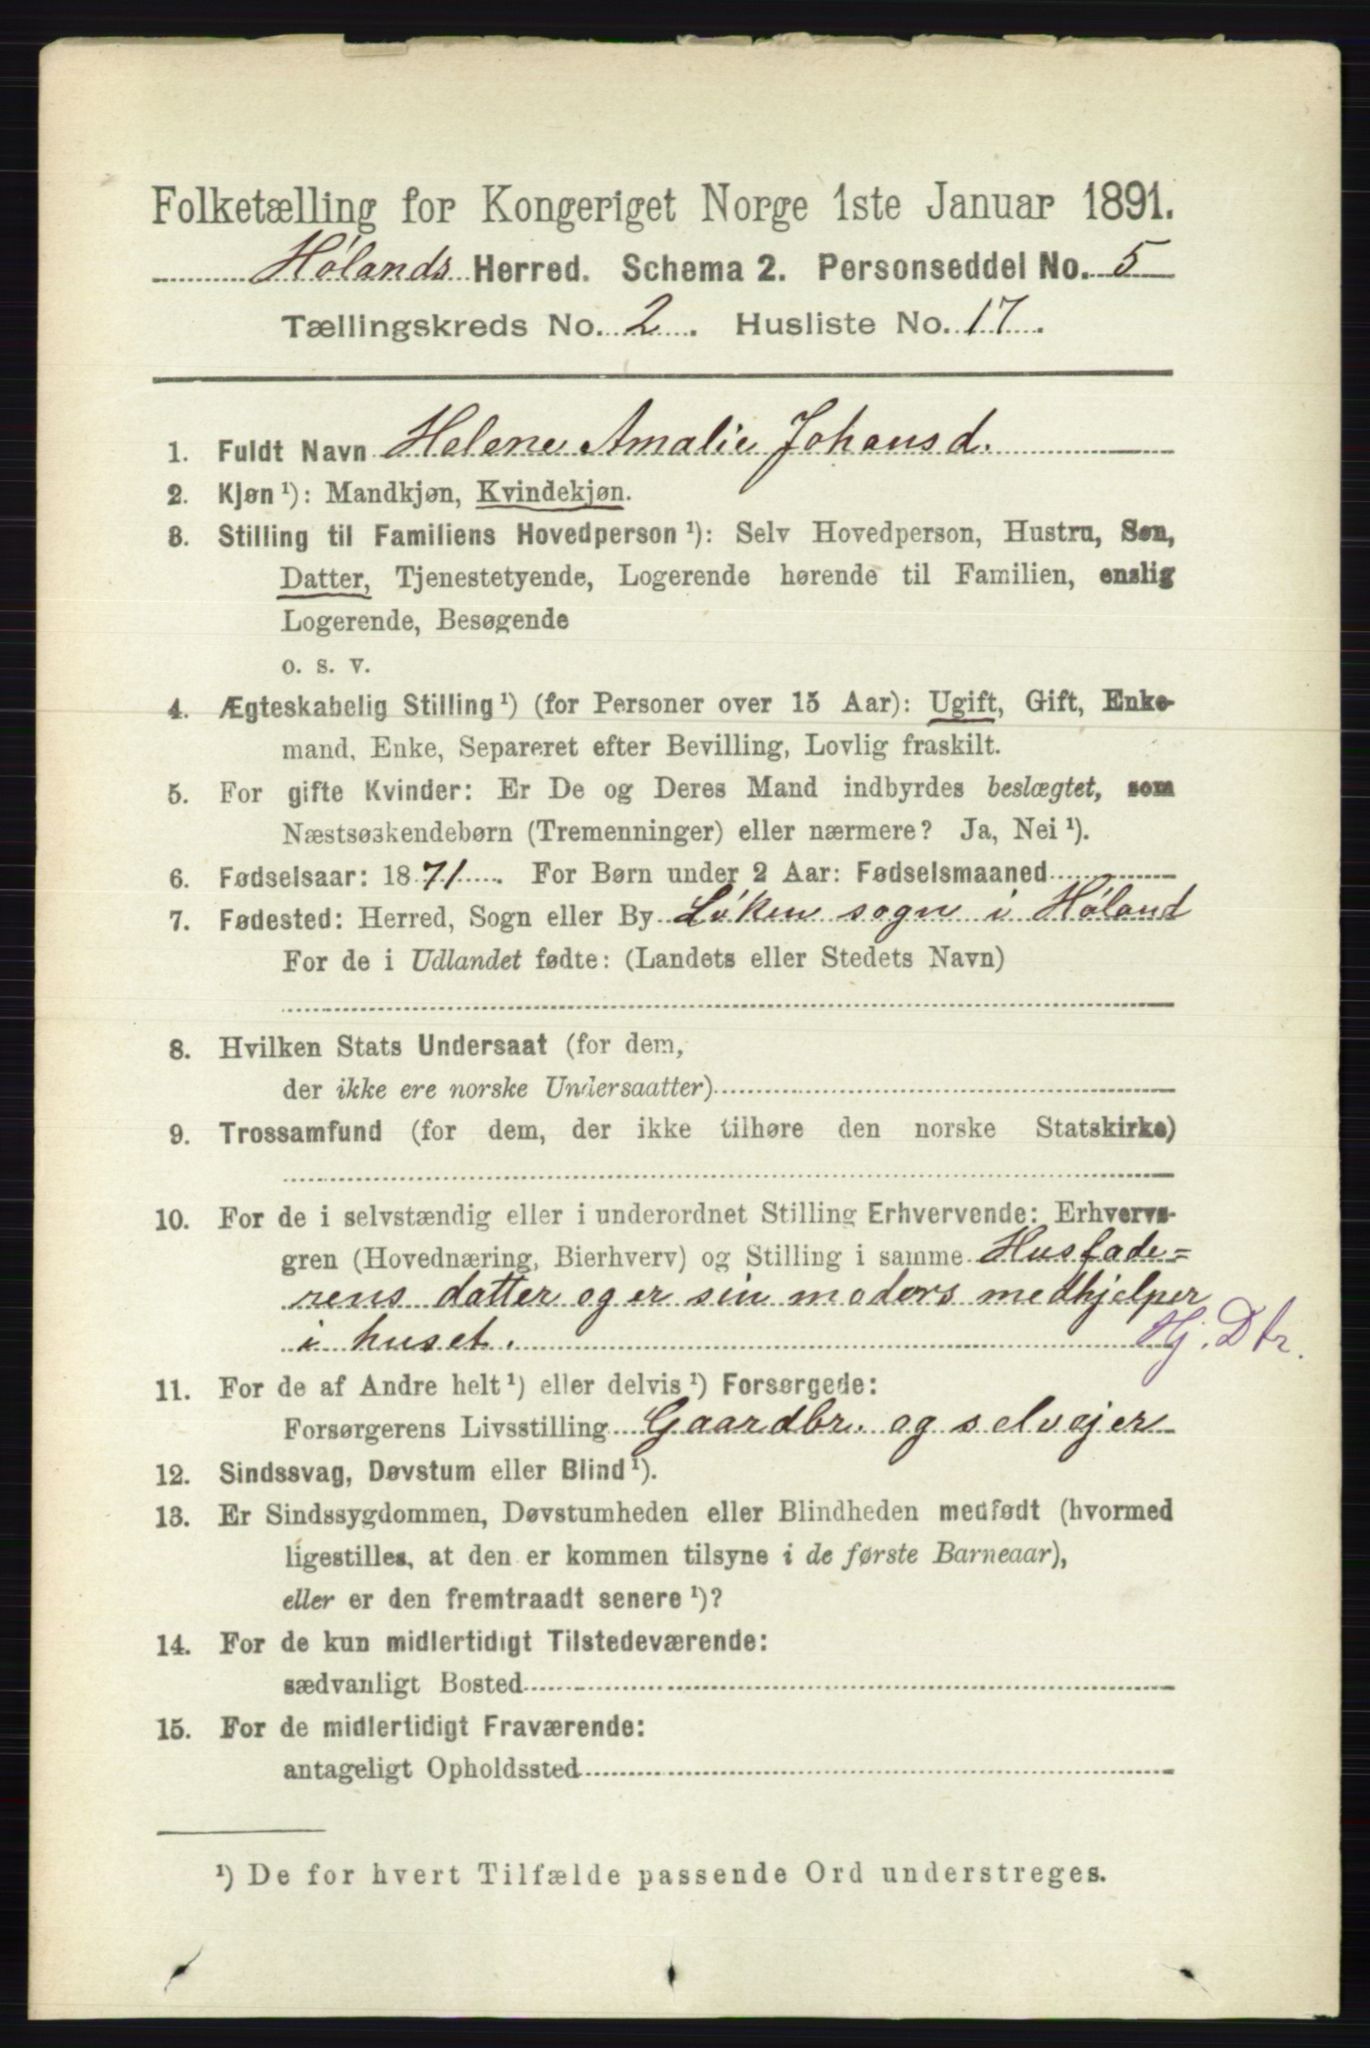 Folketælling for Kongeriget Norge 1ste Januar 1891.
Hølands Herred. Schema 2. Personseddel No. 5
Tællingskreds No. 2. Husliste No. 17.
1. Fuldt Navn Helene Amalie Johansd.
2. Kjøn ¹): Mandkjøn, Kvindekjøn.
3. Stilling til Familiens Hovedperson ¹): Selv Hovedperson, Hustru, Søn,
Datter, Tjenestetyende, Logerende hørende til Familien, enslig
Logerende, Besøgende
o. s. v.
4. Ægteskabelig Stilling ¹) (for Personer over 15 Aar): Ugift, Gift, Enke-
mand, Enke, Separeret efter Bevilling, Lovlig fraskilt.
5. For gifte Kvinder: Er De og Deres Mand indbyrdes beslægtet, som
Næstsøskendebørn (Tremenninger) eller nærmere? Ja, Nei ¹).
6. Fødselsaar: 1871. For Børn under 2 Aar: Fødselsmaaned
7. Fødested: Herred, Sogn eller By Løken sogn i Høland
For de i Udlandet fødte: (Landets eller Stedets Navn)
8. Hvilken Stats Undersaat (for dem,
der ikke ere norske Undersaatter)
9. Trossamfund (for dem, der ikke tilhøre den norske Statskirke)
10. For de i selvstændig eller i underordnet Stilling Erhvervende: Erhvervs-
gren (Hovednæring, Bierhverv) og Stilling i samme Husfade=
rens datter og er sin moders medhjelper
i huset. Hj. Dtr.
11. For de af Andre helt ¹) eller delvis ¹) Forsørgede:
Forsørgerens Livsstilling Gaardbr. og selvejer
12. Sindssvag, Døvstum eller Blind ¹).
13. Er Sindssygdommen, Døvstumheden eller Blindheden medfødt (hvormed
ligestilles, at den er kommen tilsyne i de første Barneaar),
eller er den fremtraadt senere ¹)?
14. For de kun midlertidigt Tilstedeværende:
sædvanligt Bosted
15. For de midlertidigt Fraværende:
antageligt Opholdssted
¹) De for hvert Tilfælde passende Ord understreges.